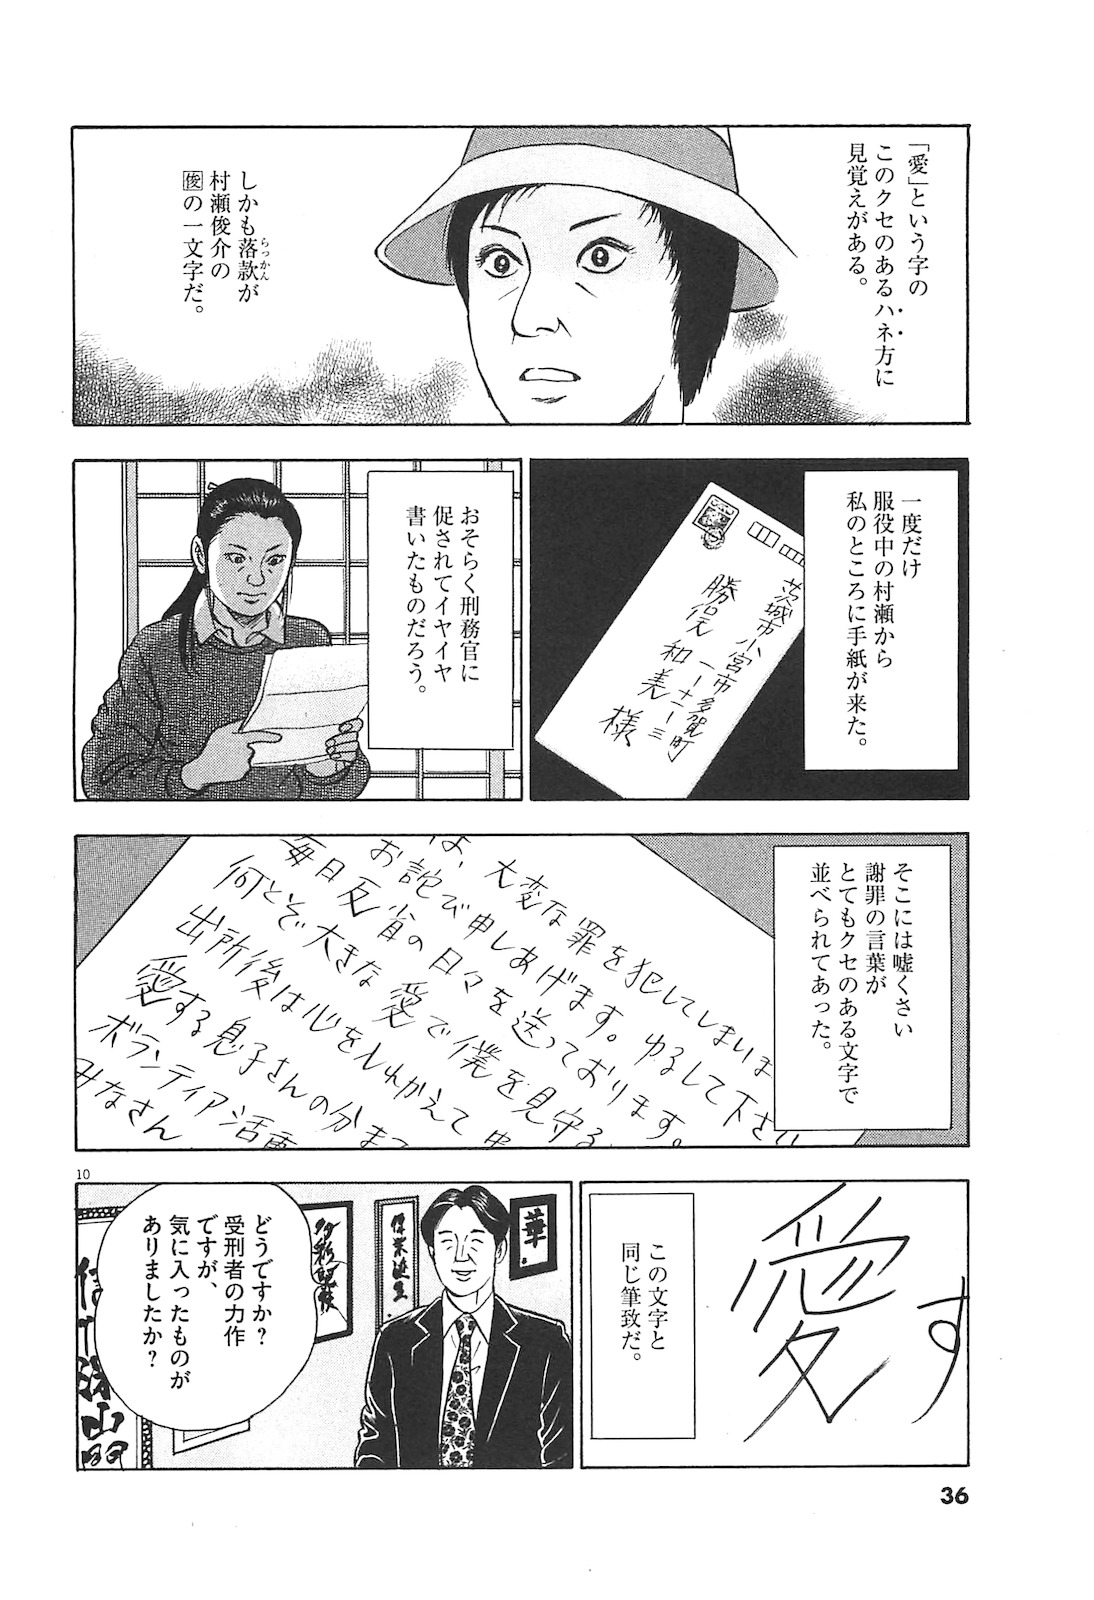 「愛」という字の
このクセのあるハネ方に
見覚えがある。
しかも落款が
らっかん
村瀬俊介の
俊の一文字だ。
一度だけ
服役中の村瀬から
私のところに手紙が来た。
茨城市小宮市多賀町
一ー十二ー三
勝俣和美様
おそらく刑務官に
促されてイヤイヤ
書いたものだろう。
そこには嘘くさい
謝罪の言葉が
とてもクセのある文字で
並べられてあった。
は、大変な罪を犯してしまいま
お詫び申しあげます。ゆるして下さい
毎日反省の日々を送っております。
何とぞ大きな愛で僕を見守る
出所後は心をいれかえて
愛する息子さんの分まで
ボランティア活
みなさん
10
愛す
この文字と
同じ筆致だ。
華
どうですか?
受刑者の力作
ですが、
気に入ったものが
ありましたか?
36